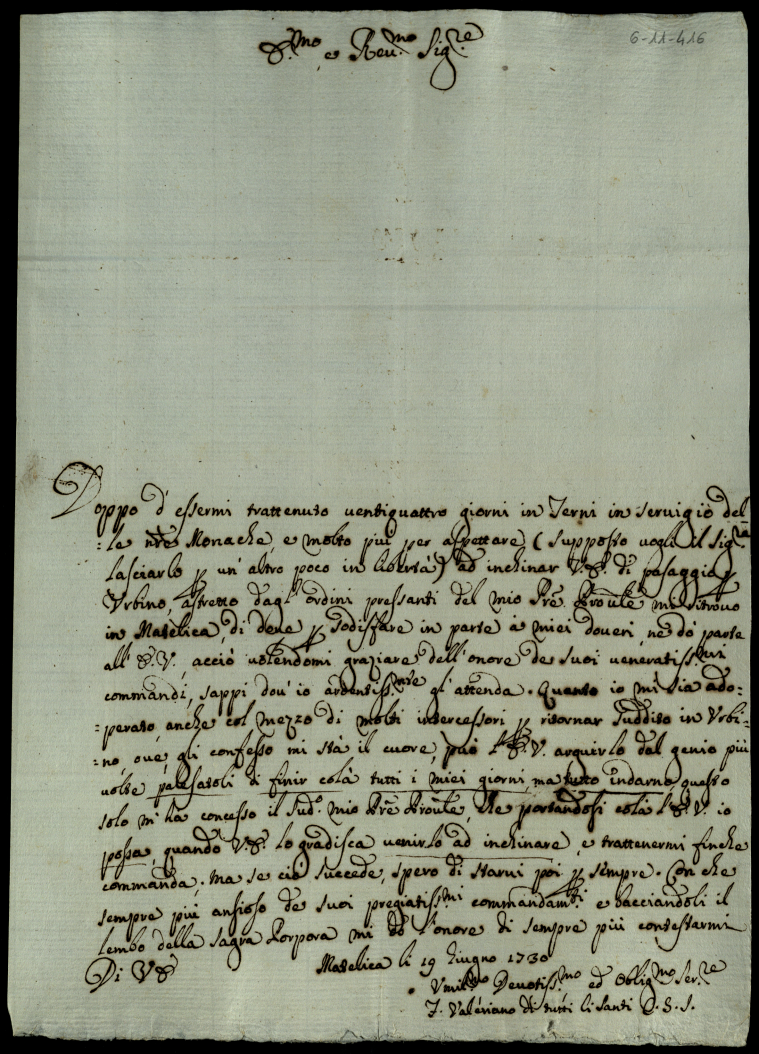 6-11-416
E.mo e Reu.mo Sig.re
Doppo d' essermi trattenuto uentiquattro giorni in Terni in seruigio del-
:le nre Monache, e molto più per aspettare (supposto uoglij il Sig.re
lasciarlo p un' altro poco in libertà) ad inchinar V. E. di pasaggio p
Vrbino, astretto dagl' ordini pressanti del mio Pre Proule mi ritrouo
in Matelica, di doue p sodisfare in parte à miei doueri, ne dò parte
all' E. V. acciò uolendomi graziare dell' onore de suoi ueneratiss.mi
commandi, sappi dou' io ardentiss.mte gl' attenda. Quanto io mi sia ado=
=perato, anche col mezzo di molti intercessori p ritornar suddito in Vrbi=
=no, oue, gli confesso mi stà il cuore, può l' E. V. arguirlo dal genio più
uolte palesatoli di finir colà tutti i miei giorni, ma tutto indarno, questo
solo m' hà concesso il sud.o mio Pre Proule, che portandosi colà l' E. V. io
possa, quando V. E. lo gradisca uenirlo ad inchinare, e trattenermi finche
commanda. Ma se ciò succede, spero di starui poi p sempre. Con che
sempre più ansioso de suoi pregiatiss.mi commandam.ti e bacciandoli il
lembo della sagra Porpora mi dò l' onore di sempre più contestarmi
Di V. E.
Matelica li 19 Giugno 1730
Vmil.mo Deuotiss.mo ed Oblig.mo Ser.re
F. Valeriano di tutti li Santi C. S.